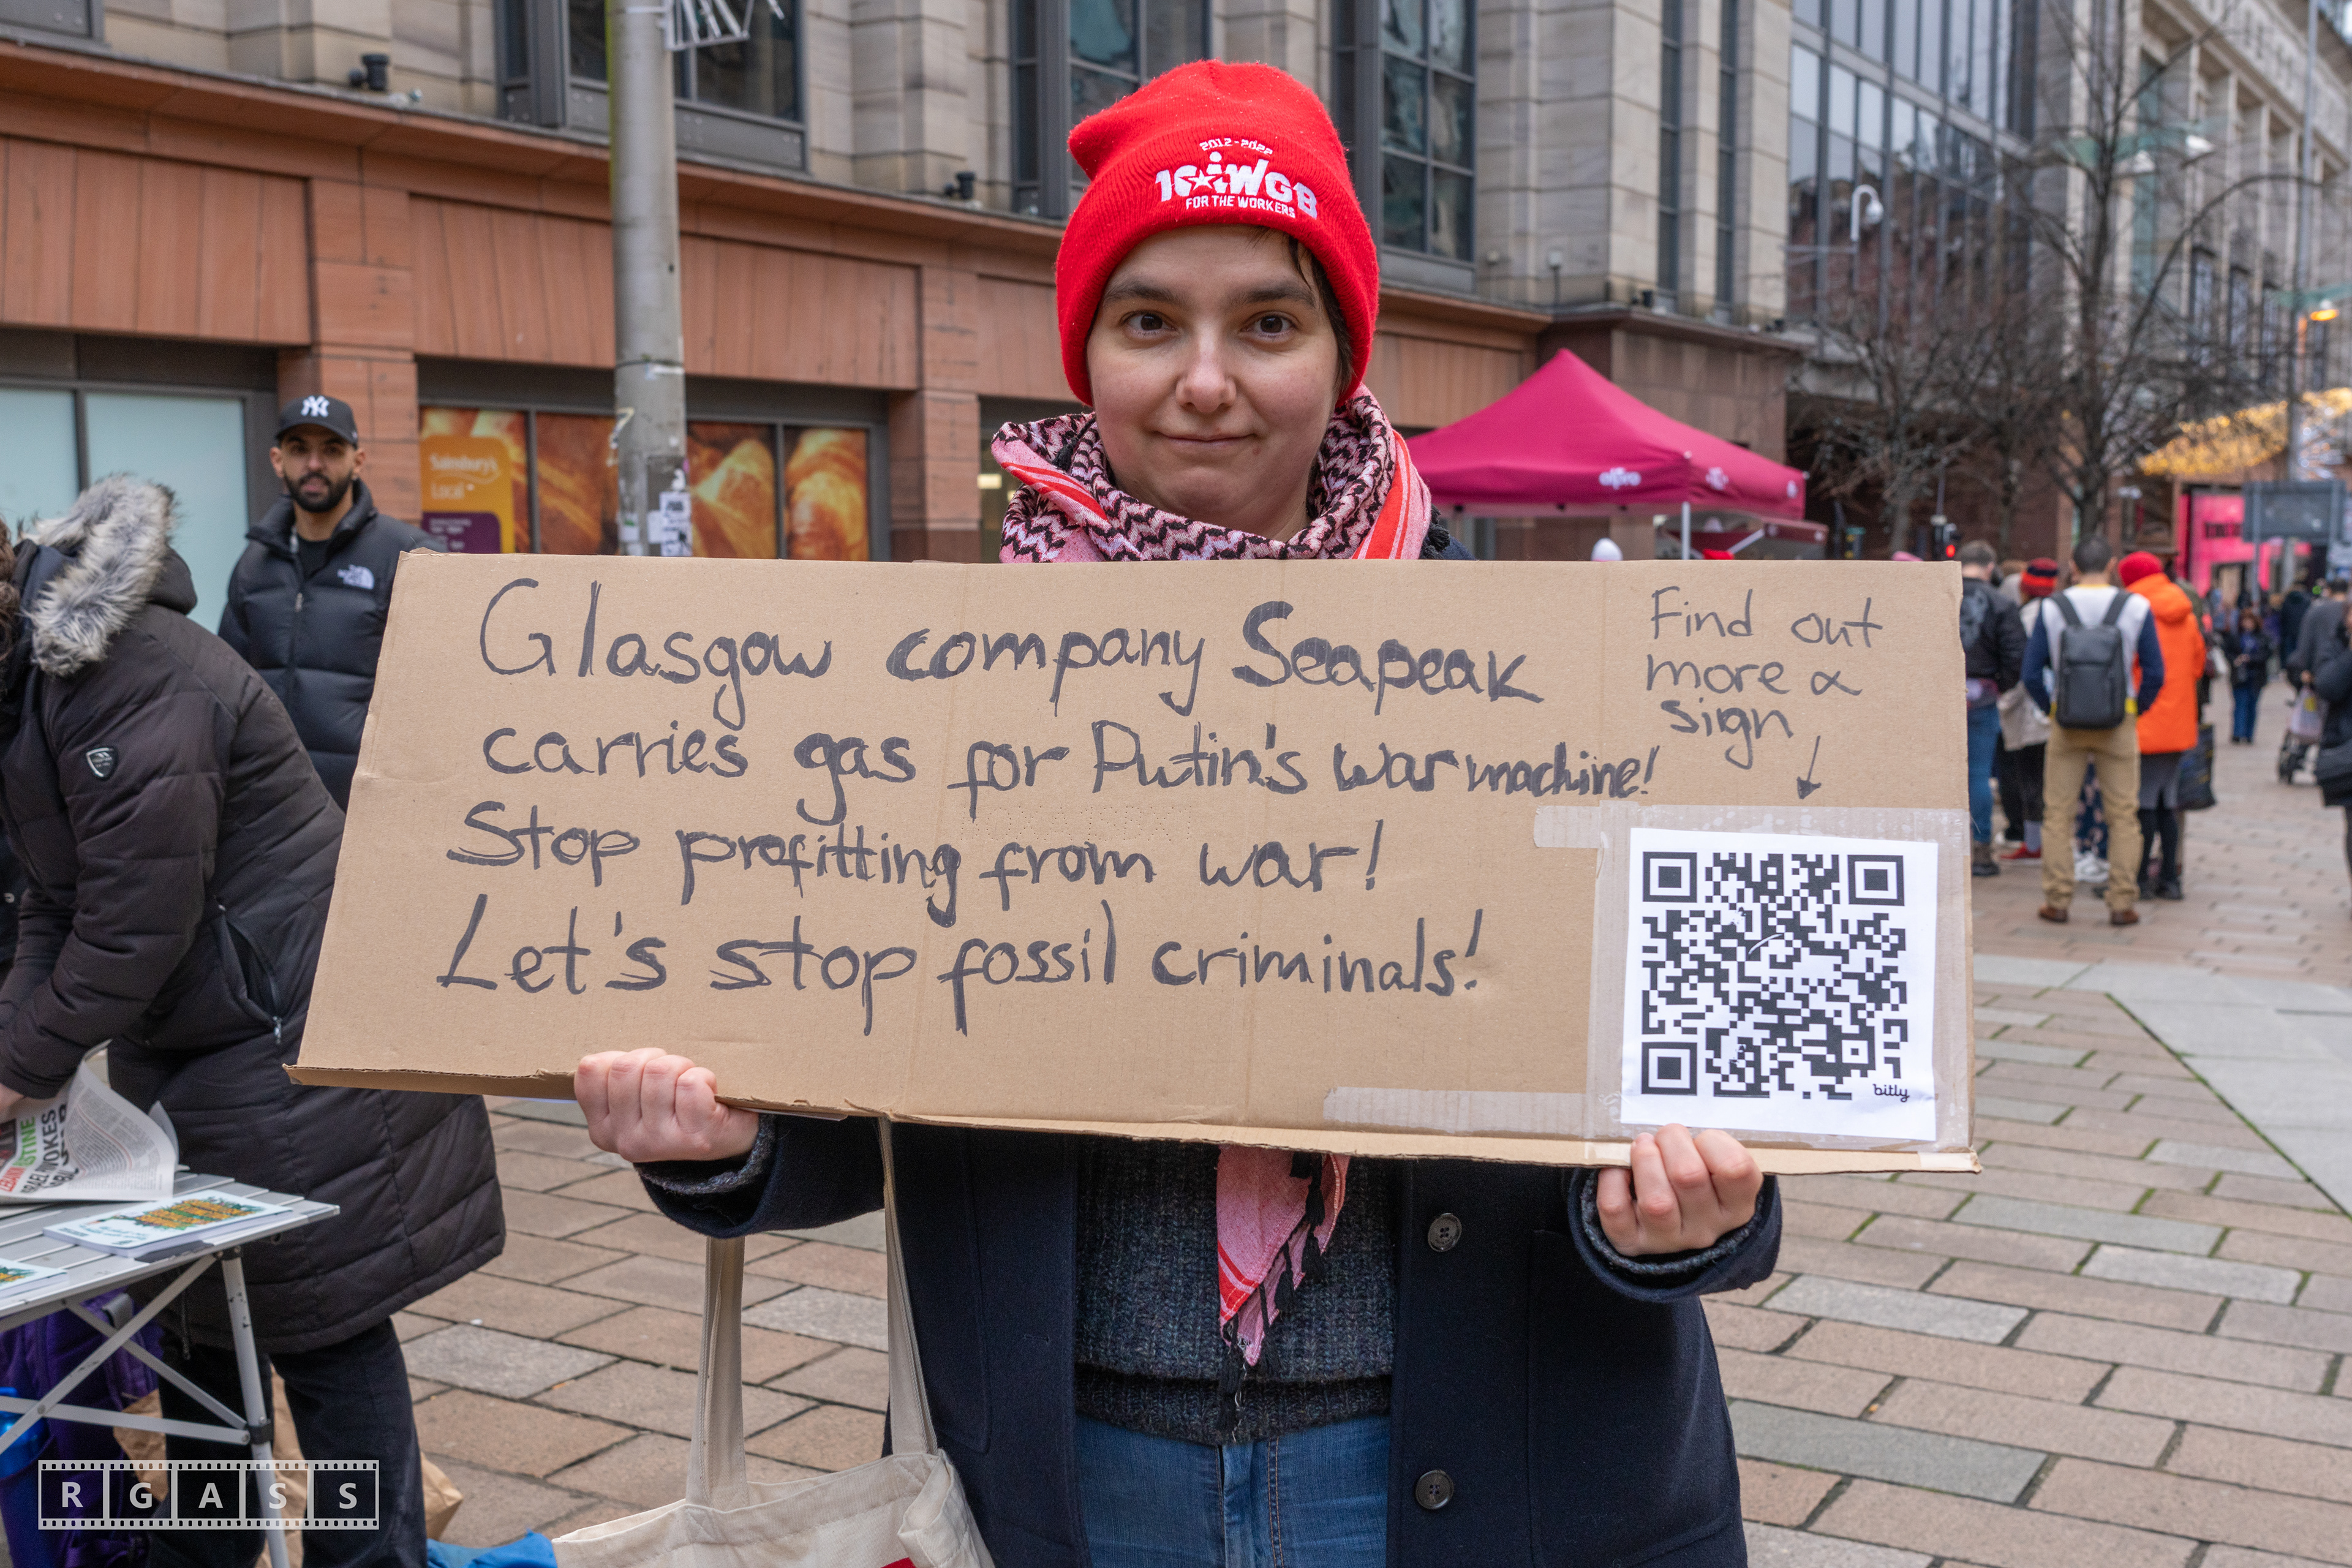 2012-2022
10 iWGB
FOR THE WORKERS
NY
Sainsbury's
Local
Glasgow company Seapeak
carries gas for Putin's war machine!
Stop profitting from war!
Let's stop fossil criminals!
Find out
more &
sign
bitly
R G A S S